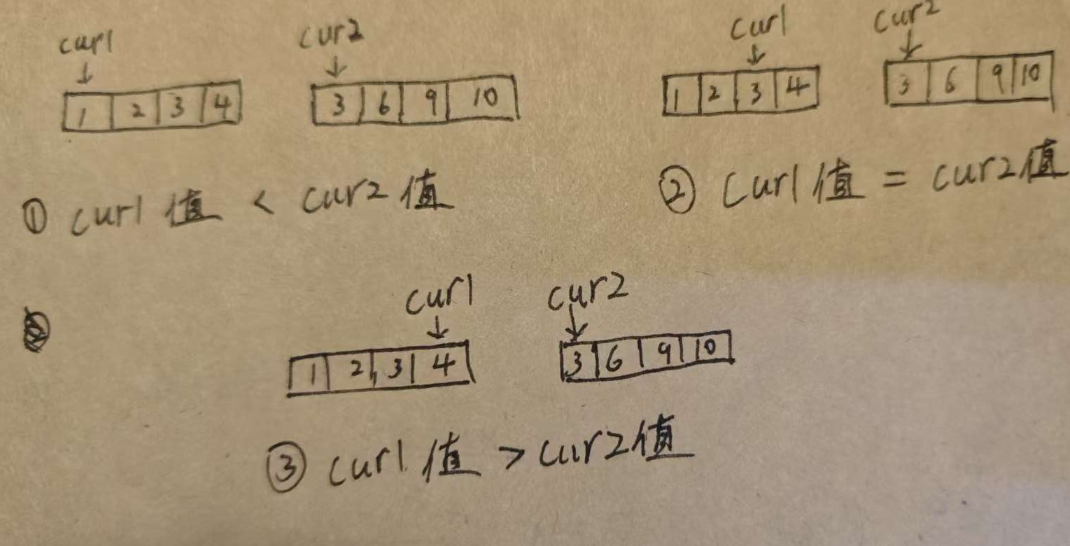 cur1 cur2
1 2 3 4 3 6 9 10
① cur1 值 < cur2 值
cur1 cur2
1 2 3 4 3 6 9 10
② cur1 值 = cur2 值
cur1 cur2
1 2 3 4 3 6 9 10
③ cur1 值 > cur2 值